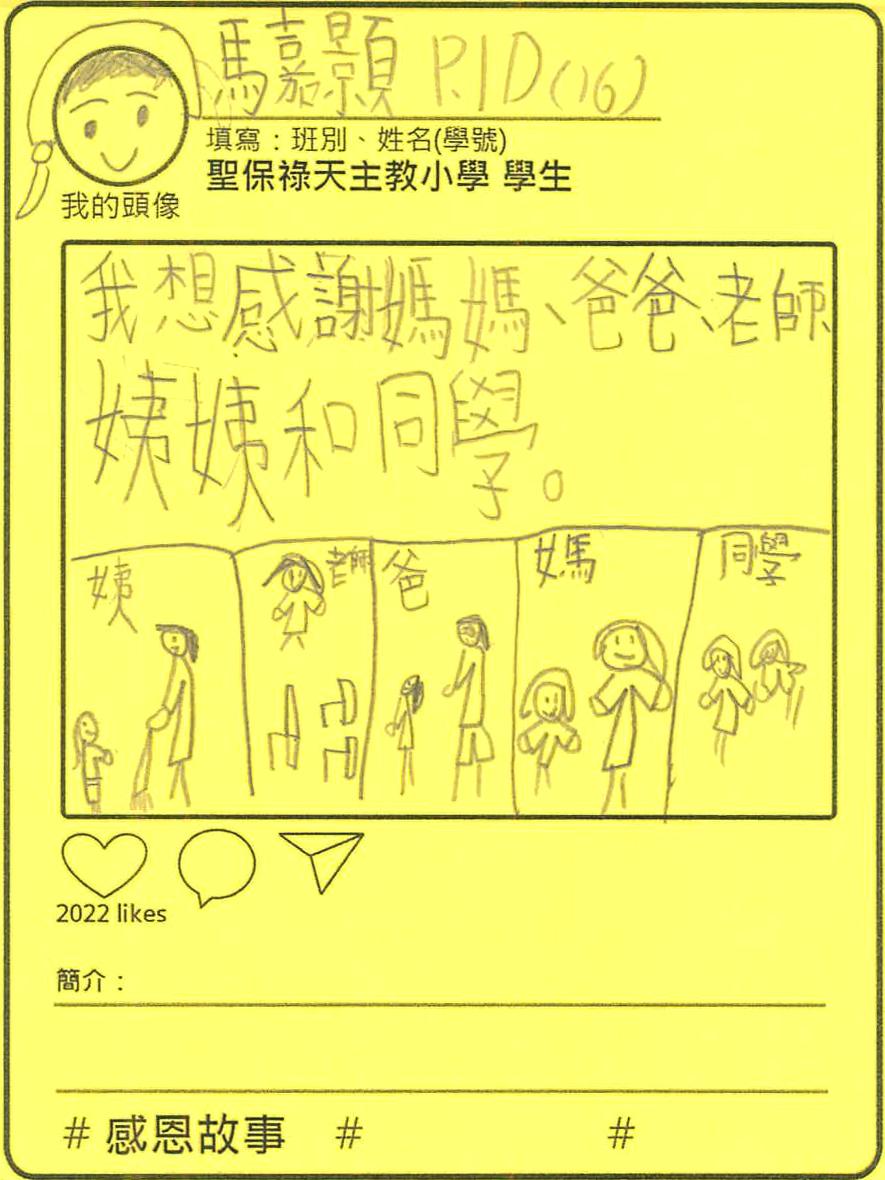 馬嘉顥 P.1D(16)
填寫：班別、姓名(學號)
聖保祿天主教小學 學生
我的頭像
我想感謝媽媽、爸爸、老師、
姨姨和同學。
姨 老師 爸 媽 同學
2022 likes
簡介：
# 感恩故事 # #